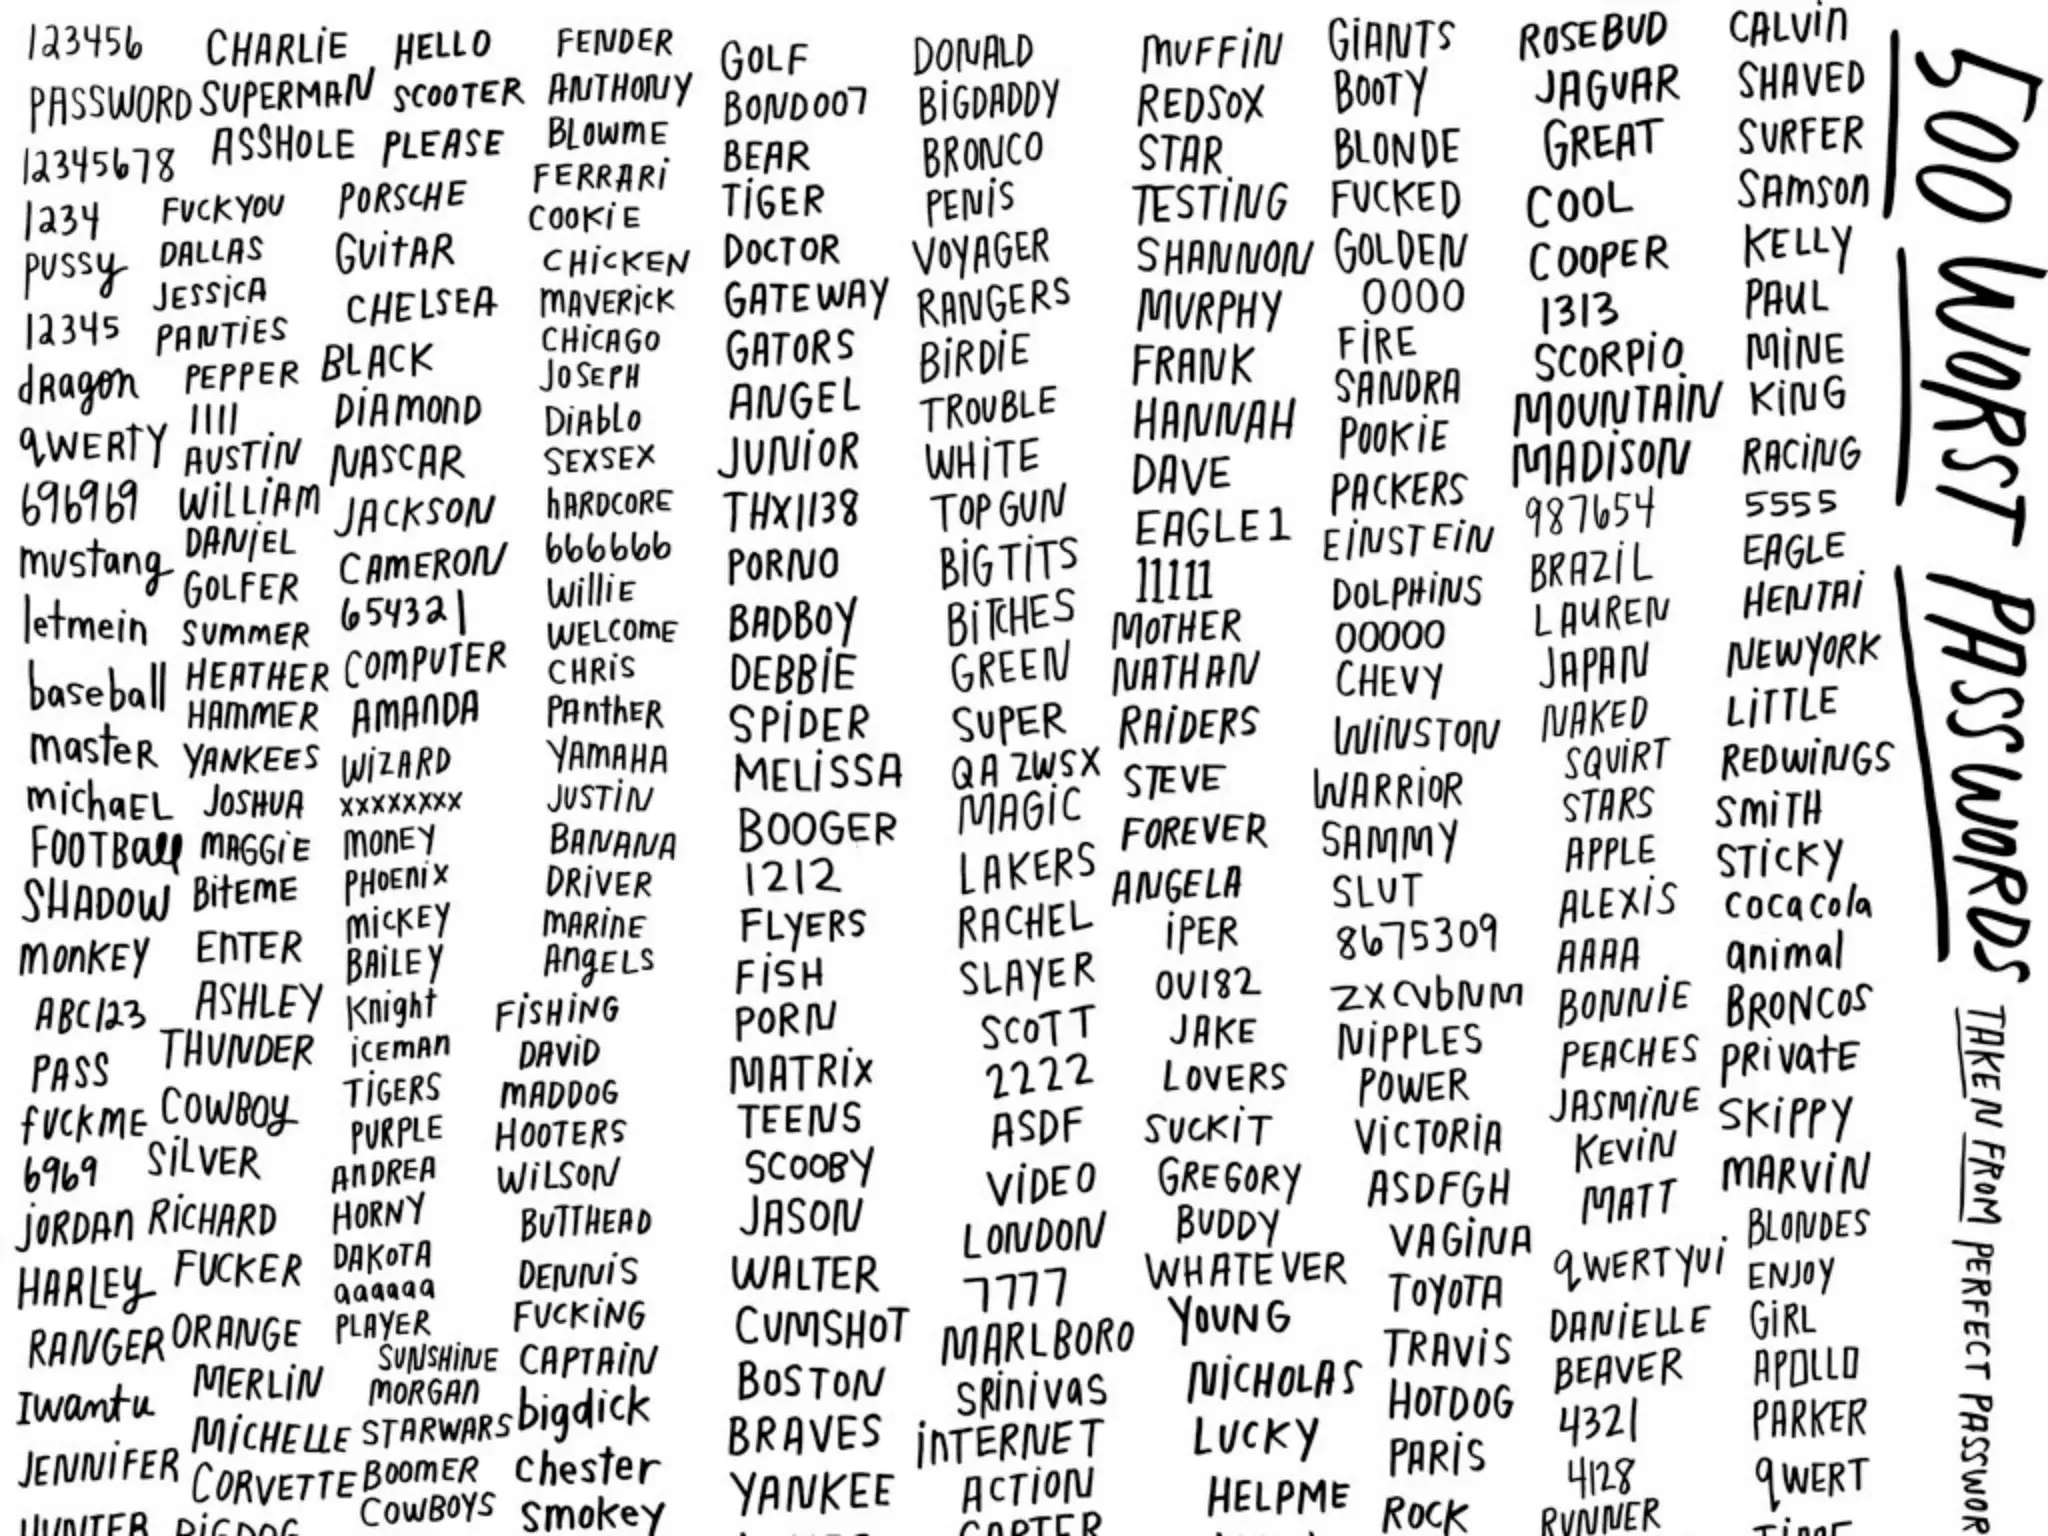 123456
PASSWORD
12345678
1234
PUSSY
12345
dRagon
qWERTY
696969
mustang
letmein
baseball
masteR
michaEL
FOOTBall
SHADOW
MONKEY
ABC123
PASS
fUCKME
6969
JORDAN
HARLEY
RANGER
Iwantu
JENNiFER
HUNTER
CHARLiE
SUPERMAN
ASSHOLE
FUCKYOU
DALLAS
JESSiCA
PANTIES
PEPPER
1111
AUSTiN
WiLLiAM
DANiEL
GOLFER
SUMMER
HEATHER
HAMMER
YANKEES
JOSHUA
MAGGiE
BitEME
ENTER
ASHLEY
THUNDER
COWBOY
SiLVER
RiCHARD
FUCKER
ORANGE
MERLiN
MiCHELLE
CORVETTE
BIGDOG
HELLO
SCOOTER
PLEASE
PORSCHE
GUitAR
CHELSEA
BLACK
DiAMOND
NASCAR
JACKSON
CAMERON
654321
COMPUTER
AMANDA
WiZARD
xxxxxxxx
MONEY
PHOENiX
MiCKEY
BAiLEY
Knight
iCEMAN
TiGERS
PURPLE
ANDREA
HORNY
DAKOTA
aaaaaa
PLAYER
SUNSHiNE
MORGAN
STARWARS
BOOMER
COWBOYS
FENDER
ANTHONY
BLOWME
FERRARi
COOKiE
CHiCKEN
MAVERiCK
CHiCAGO
JOSEPH
DiAbLo
SEXSEX
hARDCORE
666666
Willie
WELCOME
CHRiS
PAnthER
YAMAHA
JUSTiN
BANANA
DRiVER
MARiNE
AngELS
FiSHiNG
DAViD
MADDOG
HOOTERS
WiLSON
BUTTHEAD
DENNiS
FUCKiNG
CAPTAiN
bigdick
chester
smokey
GOLF
BOND007
BEAR
TiGER
DOCTOR
GATEWAY
GATORS
ANGEL
JUNiOR
THX1138
PORNO
BADBOY
DEBBiE
SPiDER
MELiSSA
BOOGER
1212
FLYERS
FiSH
PORN
MATRiX
TEENS
SCOOBY
JASON
WALTER
CUMSHOT
BOSTON
BRAVES
YANKEE
DONALD
BiGDADDY
BRONCO
PENiS
VOYAGER
RANGERS
BiRDiE
TROUBLE
WHiTE
TOPGUN
BiGTiTS
BiTCHES
GREEN
SUPER
QAZWSX
MAGiC
LAKERS
RACHEL
SLAYER
SCOTT
2222
ASDF
ViDEO
LONDON
7777
MARLBORO
SRiNiVAS
iNTERNET
ACTiON
CARTER
MUFFiN
REDSOX
STAR
TESTiNG
SHANNON
MURPHY
FRANK
HANNAH
DAVE
EAGLE1
11111
MOTHER
NATHAN
RAiDERS
STEVE
FOREVER
ANGELA
iPER
OU182
JAKE
LOVERS
SUCKiT
GREGORY
BUDDY
WHATEVER
YOUNG
NiCHOLAS
LUCKY
HELPME
GiANTS
BOOTY
BLONDE
FUCKED
GOLDEN
0000
FiRE
SANDRA
POOKiE
PACKERS
EiNSTEiN
DOLPHiNS
00000
CHEVY
WiNSTON
WARRiOR
SAMMY
SLUT
8675309
ZXCVbNM
NiPPLES
POWER
ViCTORiA
ASDFGH
VAGiNA
TOYOTA
TRAViS
HOTDOG
PARiS
ROCK
ROSEBUD
JAGUAR
GREAT
COOL
COOPER
1313
SCORPiO
MOUNTAiN
MADiSON
987654
BRAZiL
LAUREN
JAPAN
NAKED
SQUiRT
STARS
APPLE
ALEXiS
AAAA
BONNiE
PEACHES
JASMiNE
KEViN
MATT
qWERTYUi
DANiELLE
BEAVER
4321
4128
RUNNER
CALViN
SHAVED
SURFER
SAMSON
KELLY
PAUL
MiNE
KiNG
RACiNG
5555
EAGLE
HENTAi
NEWYORK
LiTTLE
REDWiNGS
SMiTH
STiCKY
cocacola
animal
BRONCOS
PRivatE
SKiPPY
MARViN
BLONDES
ENJOY
GiRL
APOLLO
PARKER
qWERT
500 WORST PASSWORDS
TAKEN FROM PERFECT PASSWOR